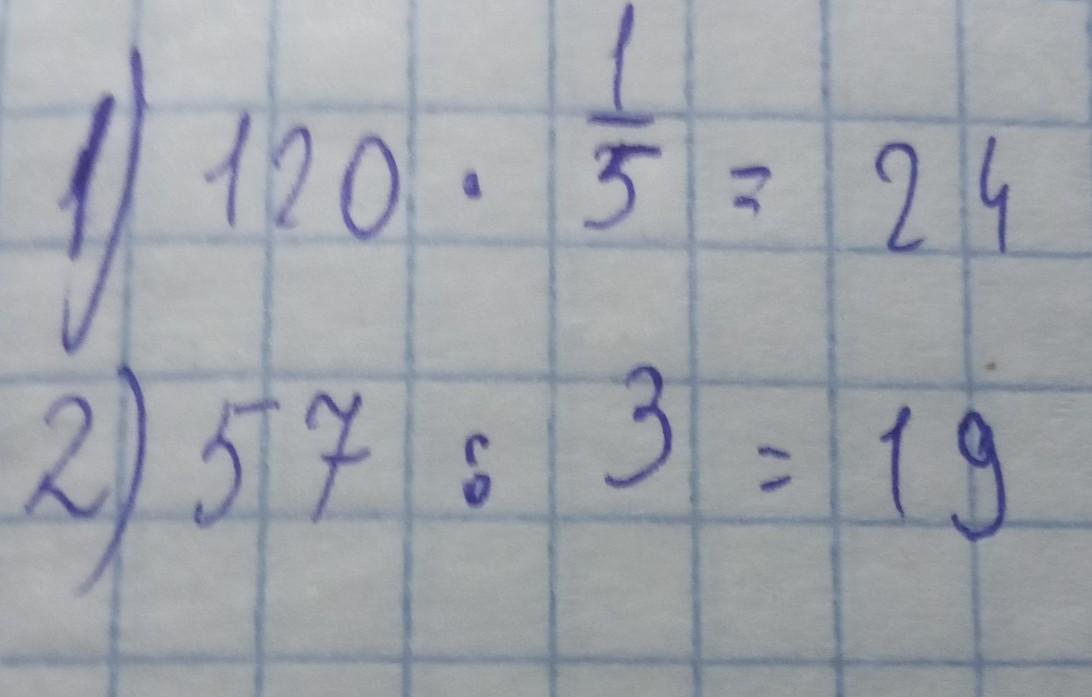 1) 120 · 1/5 = 24
2) 57 : 3 = 19